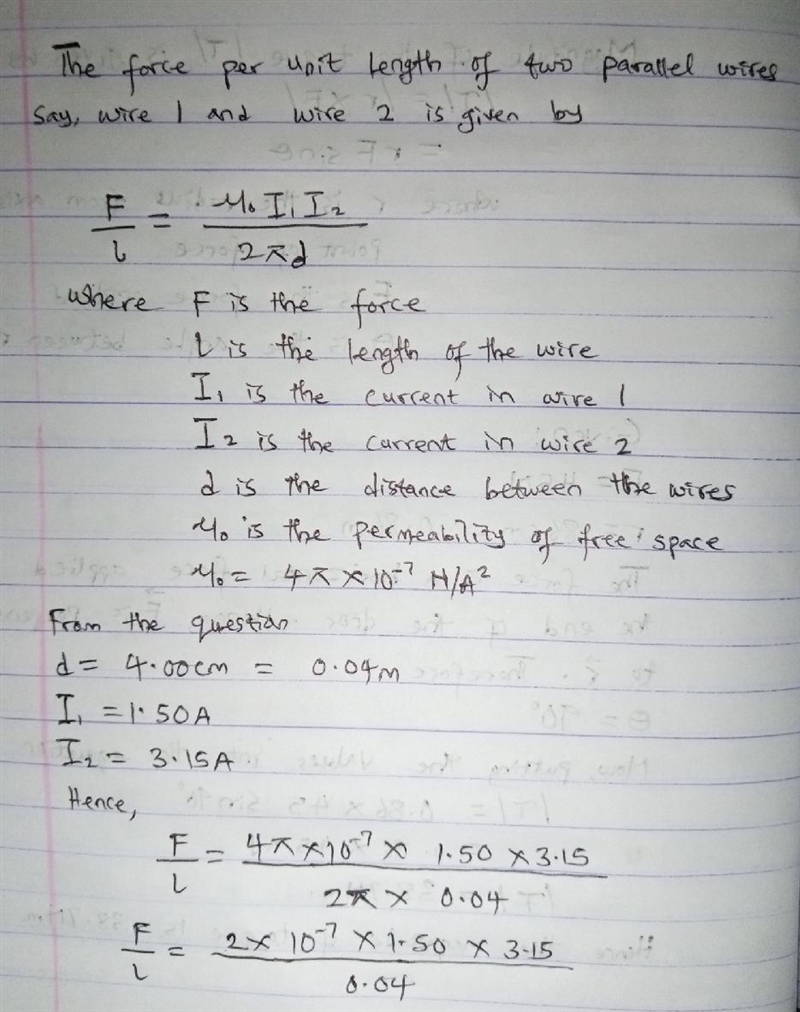 The force per unit length of two parallel wires
say, wire 1 and wire 2 is given by
F/l = μ₀ I₁ I₂ / 2πd
where F is the force
l is the length of the wire
I₁ is the current in wire 1
I₂ is the current in wire 2
d is the distance between the wires
μ₀ is the permeability of free space
μ₀ = 4π × 10⁻⁷ N/A²
From the question
d = 4.00cm = 0.04m
I₁ = 1.50A
I₂ = 3.15A
Hence,
F/l = 4π × 10⁻⁷ × 1.50 × 3.15 / 2π × 0.04
F/l = 2 × 10⁻⁷ × 1.50 × 3.15 / 0.04